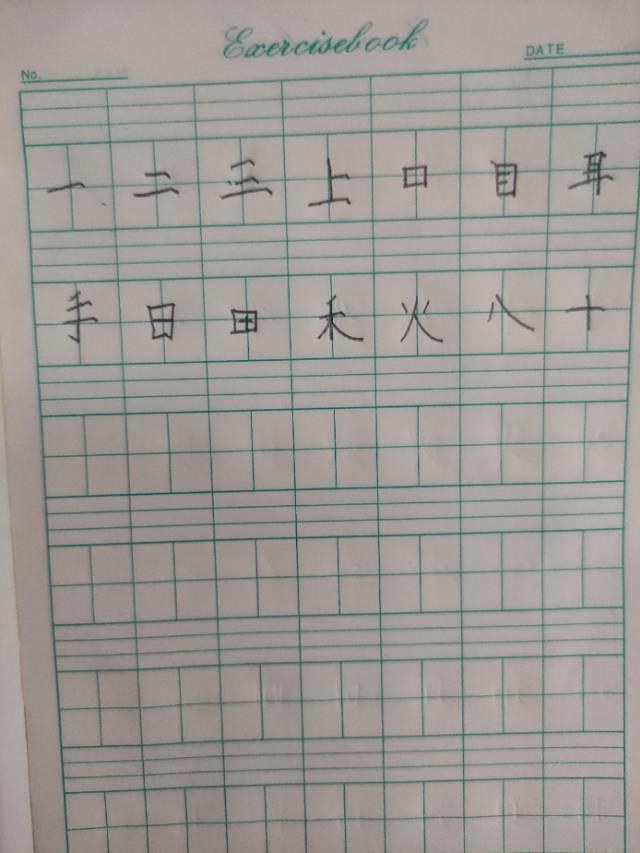 Exercisebook
No. DATE
一 二 三 上 口 目 耳
手 日 田 禾 火 八 十